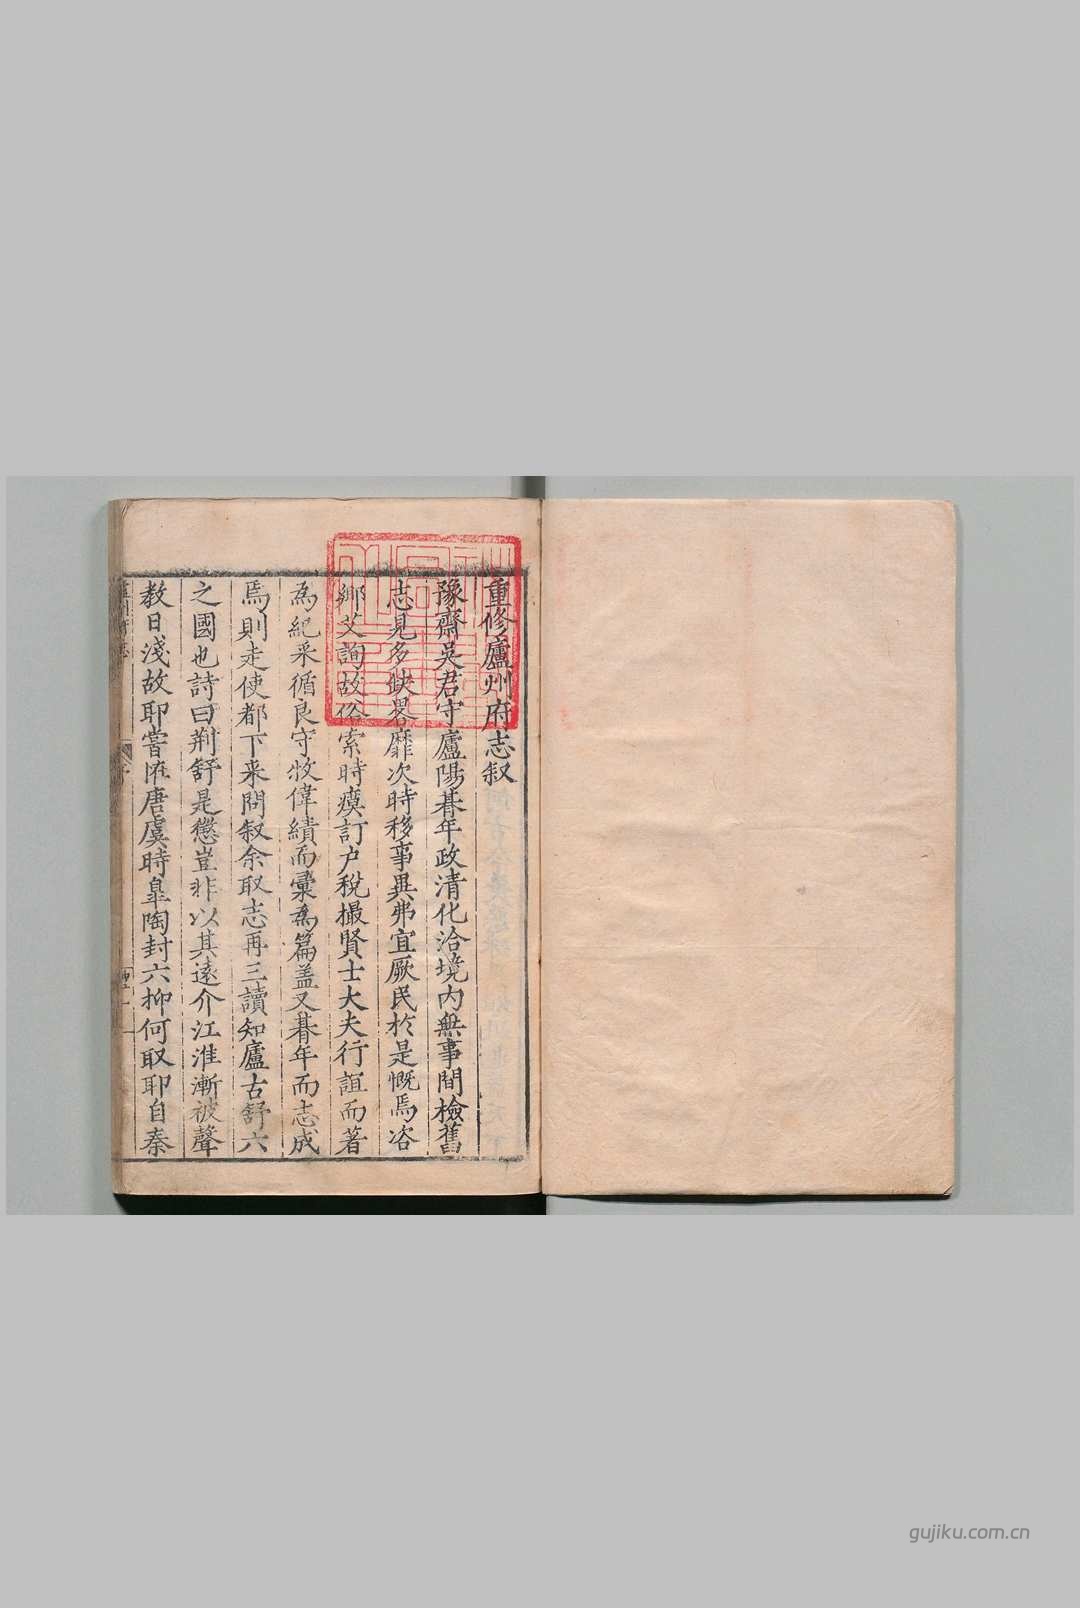 重修廬州府志叙
豫齋吳君守廬陽朞年政清化洽境内無事間檢舊
志見多缺畧靡次時移事異弗宜厥民於是慨焉咨
鄉艾詢故俗索時瘼訂户稅撮賢士大夫行誼而著
為紀采循良守牧偉績而彚為篇盖又朞年而志成
焉則走使都下来問叙余取志再三讀知廬古舒六
之國也詩曰荆舒是懲豈非以其遠介江淮漸被聲
教日淺故耶嘗恠唐虞時皐陶封六抑何取耶自秦
gujiku.com.cn